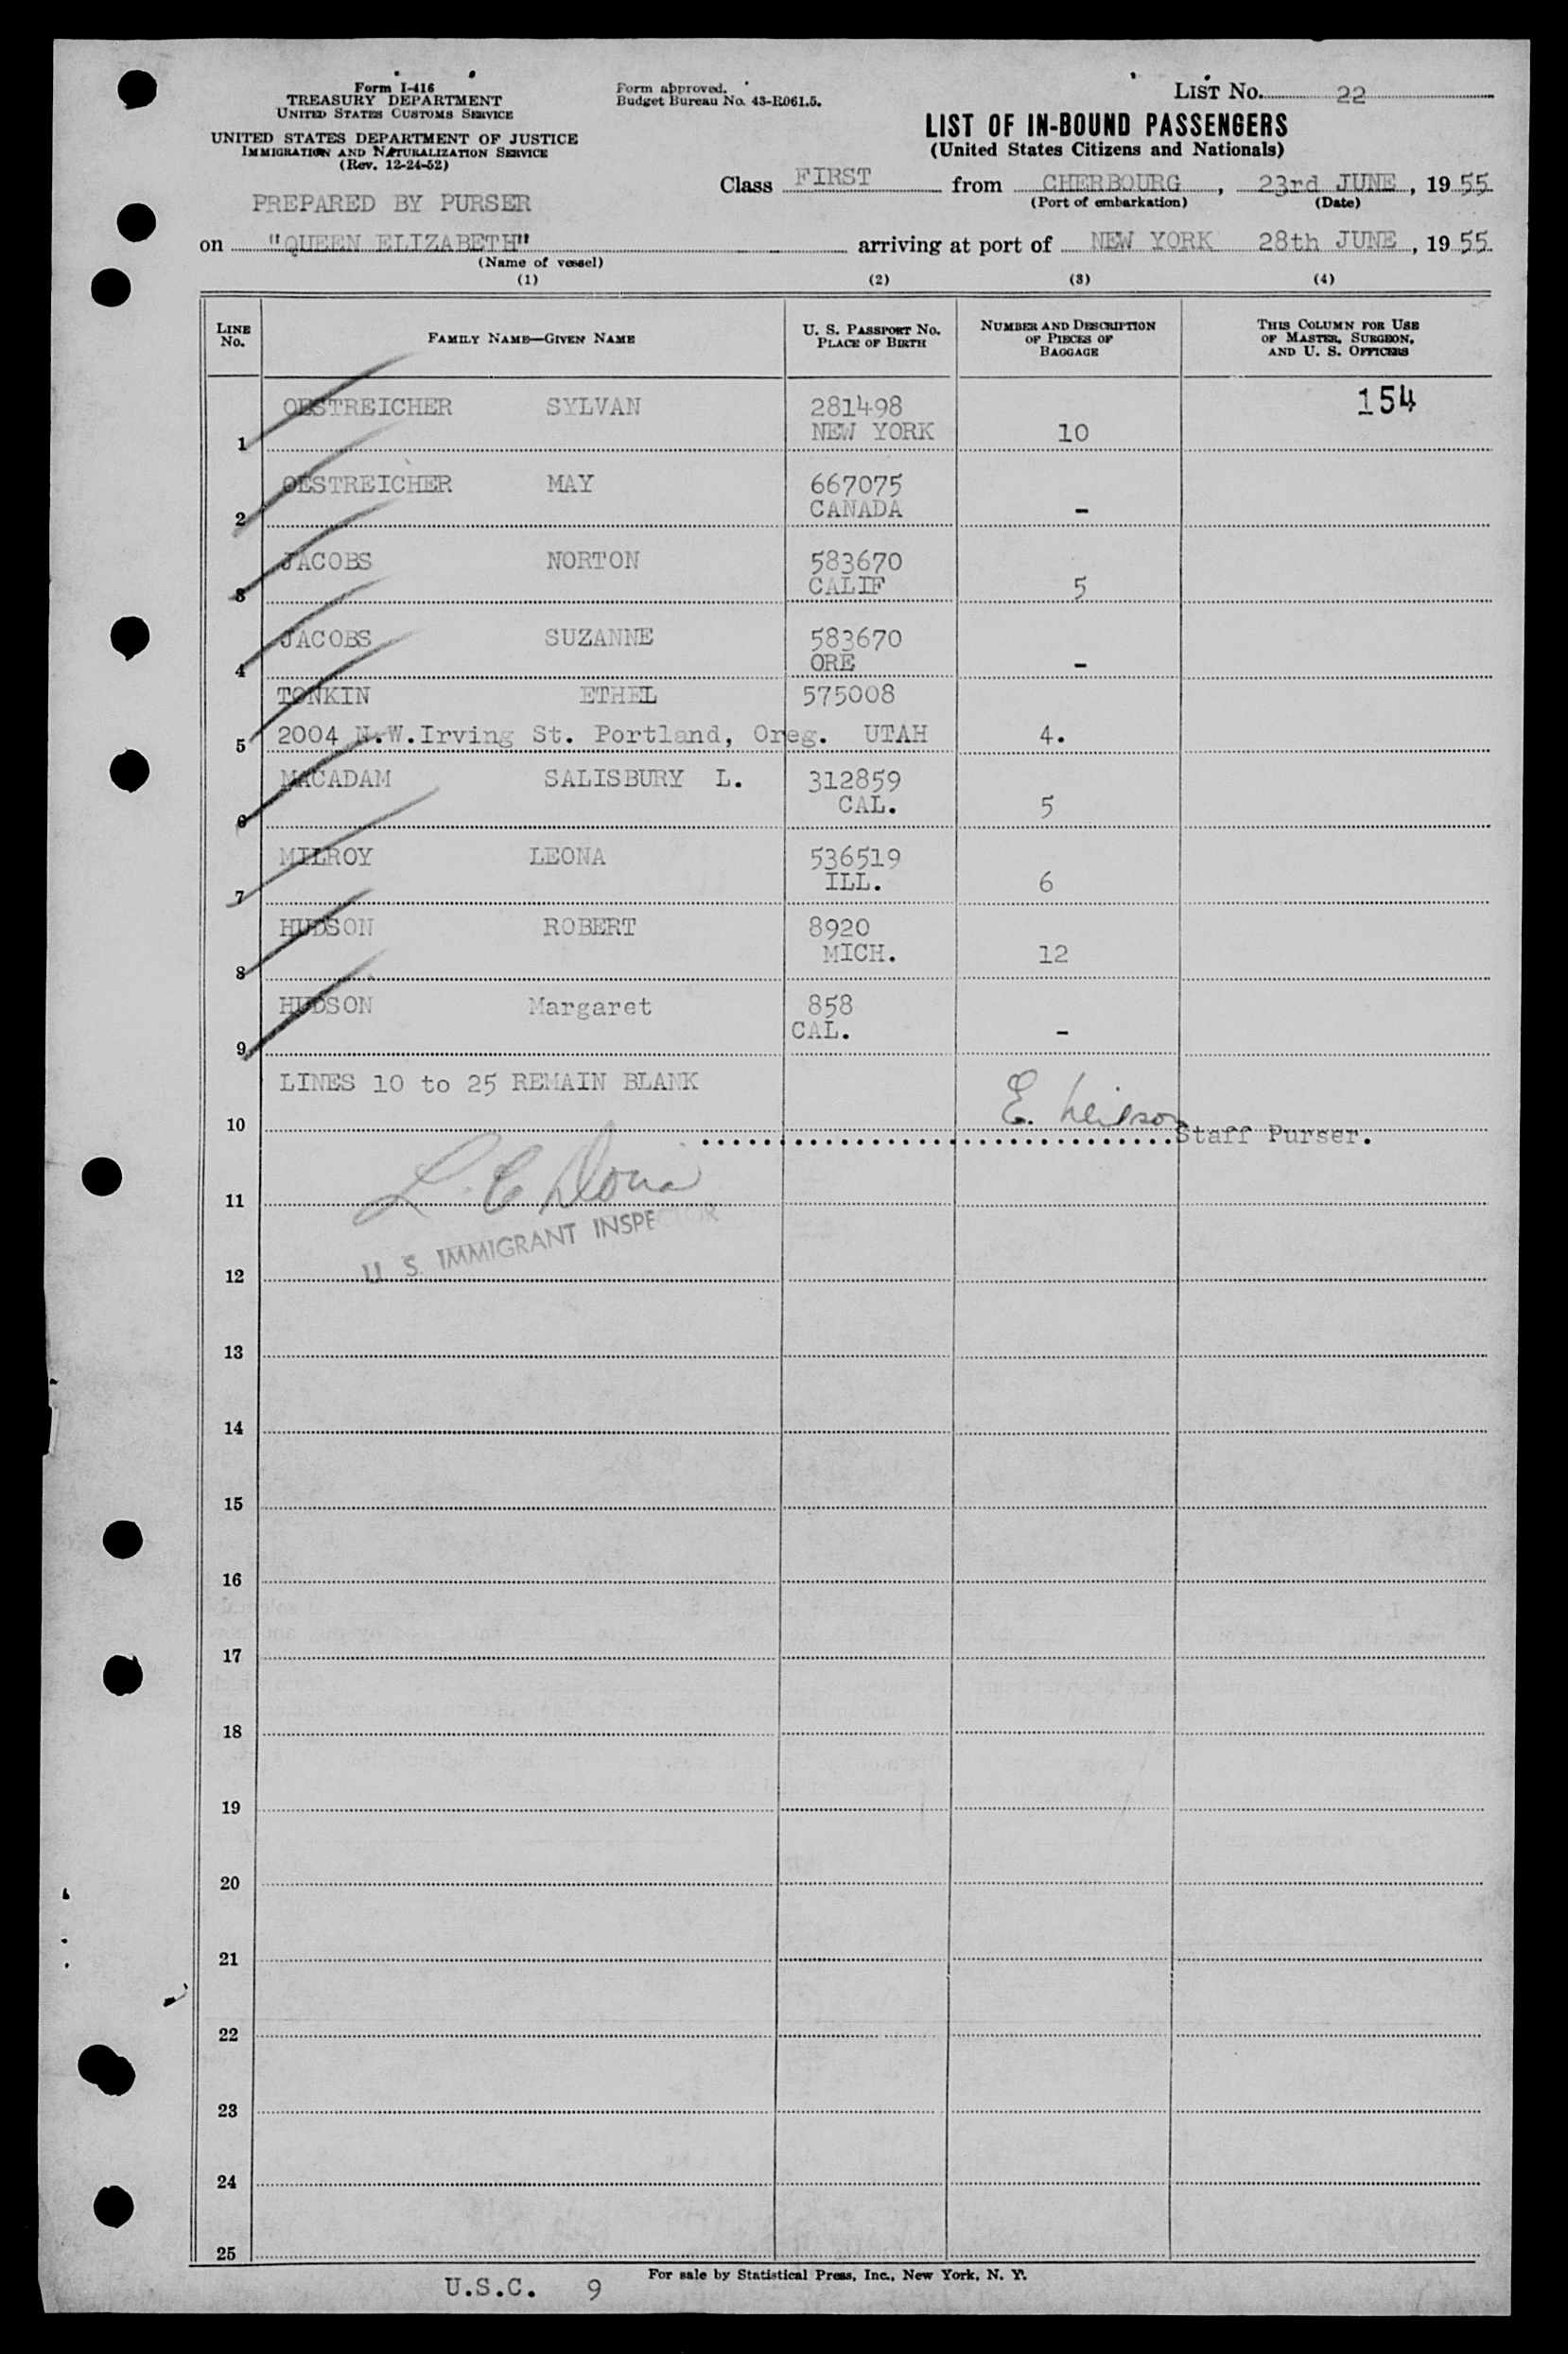 Form I-416
TREASURY DEPARTMENT
UNITED STATES CUSTOMS SERVICE
UNITED STATES DEPARTMENT OF JUSTICE
IMMIGRATION AND NATURALIZATION SERVICE
(Rev. 12-24-52)
Form approved.
Budget Bureau No. 43-R061.5.
LIST No. 22
LIST OF IN-BOUND PASSENGERS
(United States Citizens and Nationals)
Class FIRST from CHERBOURG, 23rd JUNE, 19 55
(Port of embarkation) (Date)
PREPARED BY PURSER
on "QUEEN ELIZABETH" arriving at port of NEW YORK 28th JUNE, 19 55
(Name of vessel)
(1) (2) (3) (4)
LINE No. FAMILY NAME—GIVEN NAME U. S. PASSPORT No. PLACE OF BIRTH NUMBER AND DESCRIPTION OF PIECES OF BAGGAGE THIS COLUMN FOR USE OF MASTER, SURGEON, AND U. S. OFFICERS
154
OESTREICHER SYLVAN 281498
1 NEW YORK 10
OESTREICHER MAY 667075
2 CANADA -
JACOBS NORTON 583670
3 CALIF 5
JACOBS SUZANNE 583670
4 ORE -
TONKIN ETHEL 575008
5 2004 N.W.Irving St. Portland, Oreg. UTAH 4.
MACADAM SALISBURY L. 312859
6 CAL. 5
MILROY LEONA 536519
7 ILL. 6
HUDSON ROBERT 8920
8 MICH. 12
HUDSON Margaret 858
9 CAL. -
LINES 10 to 25 REMAIN BLANK
10 E. Neilson Staff Purser.
11 L. C.
U. S. IMMIGRANT INSPECTOR
12
13
14
15
16
17
18
19
20
21
22
23
24
25
For sale by Statistical Press, Inc., New York, N. Y.
U.S.C. 9